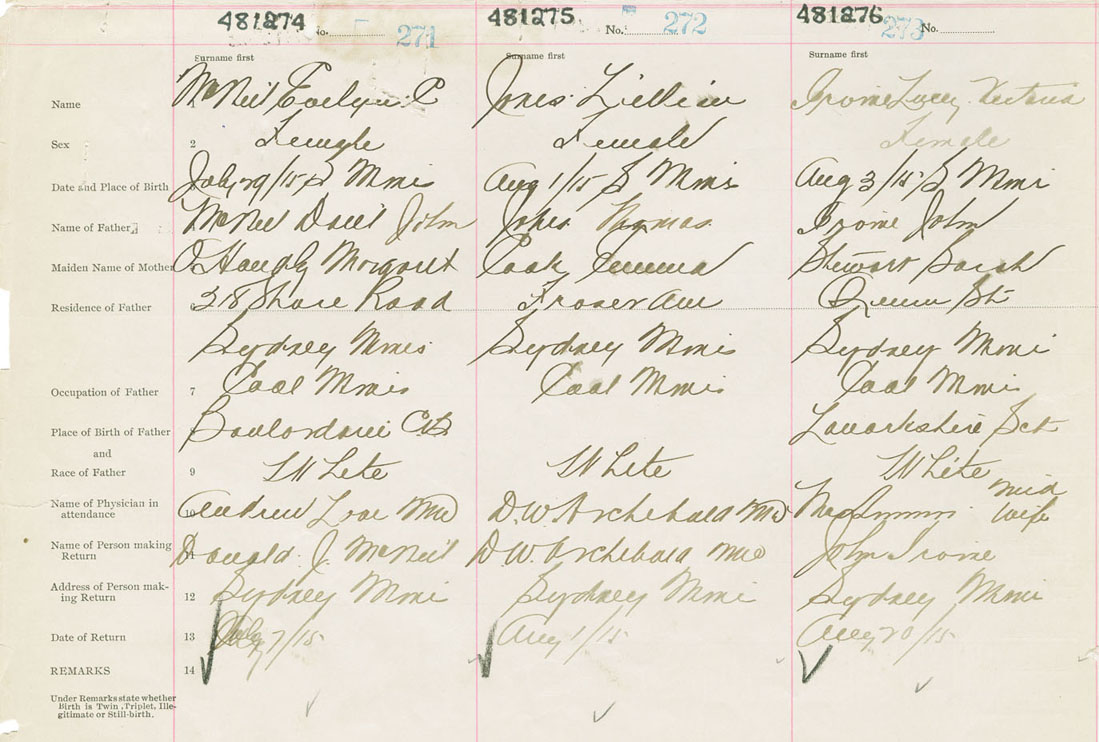 481274 No. 271 481275 No. 272 481276 273 No.
Surname first Surname first Surname first
Name McNeil Evelyn C Jones Lillian Irvine Lucy Victoria
Sex 2 Female Female Female
Date and Place of Birth July 29/15 S Mines Aug 1/15 S Mines Aug 3/15 S Mines
Name of Father McNeil Daniel John Jones Thomas Irvine John
Maiden Name of Mother Margaret Cook Emma Stewart Sarah
Residence of Father 6 318 Shore Road Fraser Ave Queen St
Sydney Mines Sydney Mines Sydney Mines
Occupation of Father 7 Coal Mines Coal Mines Coal Mines
Place of Birth of Father Boulardarie CB Lanarkshire Sct
and
Race of Father 9 White White White
Name of Physician in mid
attendance 10 Andrew Love MD D. W. Archibald MD Mrs wife
Name of Person making
Return 11 Donald J. McNeil D. W. Archibald MD John Irvine
Address of Person mak-
ing Return 12 Sydney Mines Sydney Mines Sydney Mines
Date of Return 13 7/15 Aug 1/15 Aug 20/15
REMARKS 14
Under Remarks state whether
Birth is Twin, Triplet, Ille-
gitimate or Still-birth.